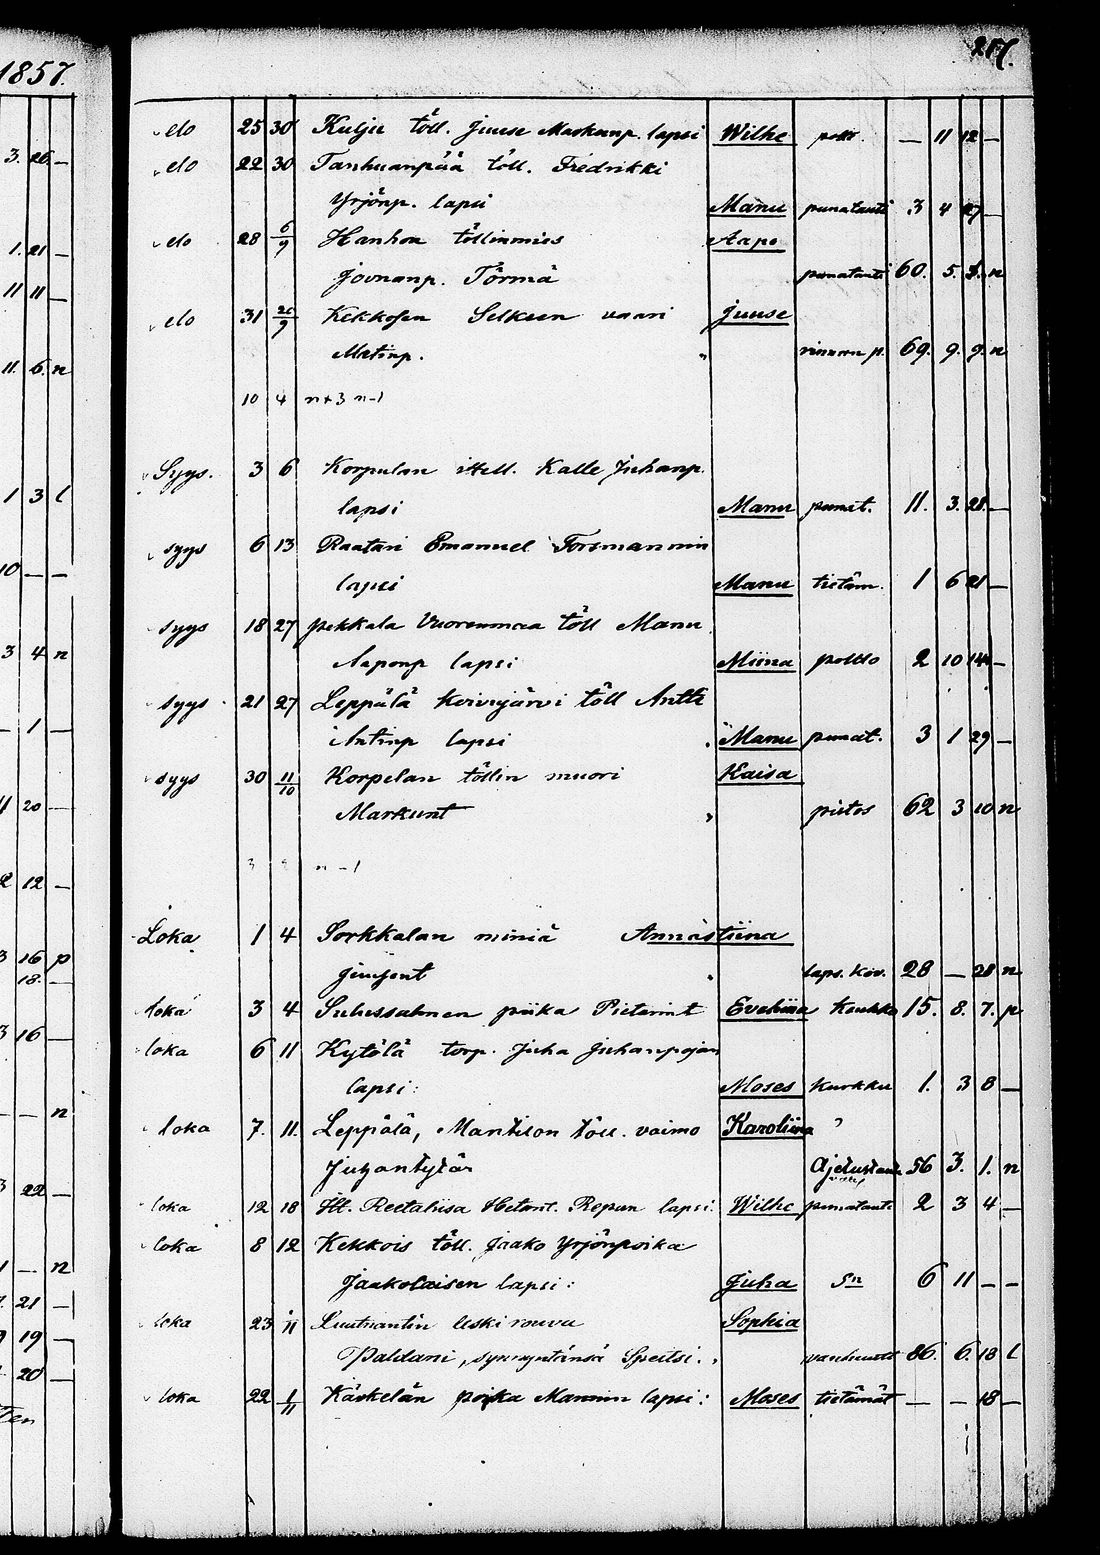 1857.
217.
elo 25 30 Kulju töll. Juuse Markunp. lapsi Wilhe polt. — 11 12 —
elo 22 30 Tanhuanpää töll. Fredrikki
Yrjönp. lapsi Manu punatauti 3 4 27 —
elo 28 6/9 Hanhon töllinmies Aapo
Joonanp. Törmä punatauti 60. 5. n
elo 31 Kekkosen Selkeen vaari Juuse
Matinp. rinnan p. 69. 9. 9. n
10 4 n+3 n-1
Syys. 3 6 Korpulan itell. Kalle Juhanp.
lapsi Manu punat. 11. 3. 28. —
syys 6 13 Raatari Emanuel Forsmannin
lapsi Manu tietäm. 1 6 21 —
syys 18 27 Pekkala Vuorenmaa töll Manu
Aaponp lapsi Miina poltto 2 10 14 —
syys 21 27 Leppälä Koivujärvi töll Antti
Antinp lapsi Manu punat. 3 1 29 —
syys 30 11/10 Korpelan töllin muori Kaisa
Markunt pistos 62 3 10 n
3 n-1
Loka 1 4 Sorkkalan miniä Annastiina
Juusont laps. kov. 28 — 28 n
loka 3 4 piika Pietarint Eveliina Keuhko 15. 8. 7. p
loka 6 11 Kytölä torp. Juha Juhanpojan
lapsi: Moses Kurkku 1. 3 8 —
loka 7. 11. Leppälä, Mantilon töll. vaimo Karoliina
Juhantytär Ajetustauti 56 3. 1. n
loka 12 18 Itl. Reetaliisa Hetant. Repun lapsi: Wilhe punatauti 2 3 4 —
loka 8 12 Kekkois töll. Jaako Yrjönpoika
Jaakolaisen lapsi: Juha Sn 6 11 — —
loka 23 1/11 Luutnantin leski rouva Sophia
Paldani, synnyntänsä Speitsi. vanhuutt 86. 6. 18 l
loka 22 1/11 Käskelän poika Mannin lapsi: Moses tietämät — — 18 —